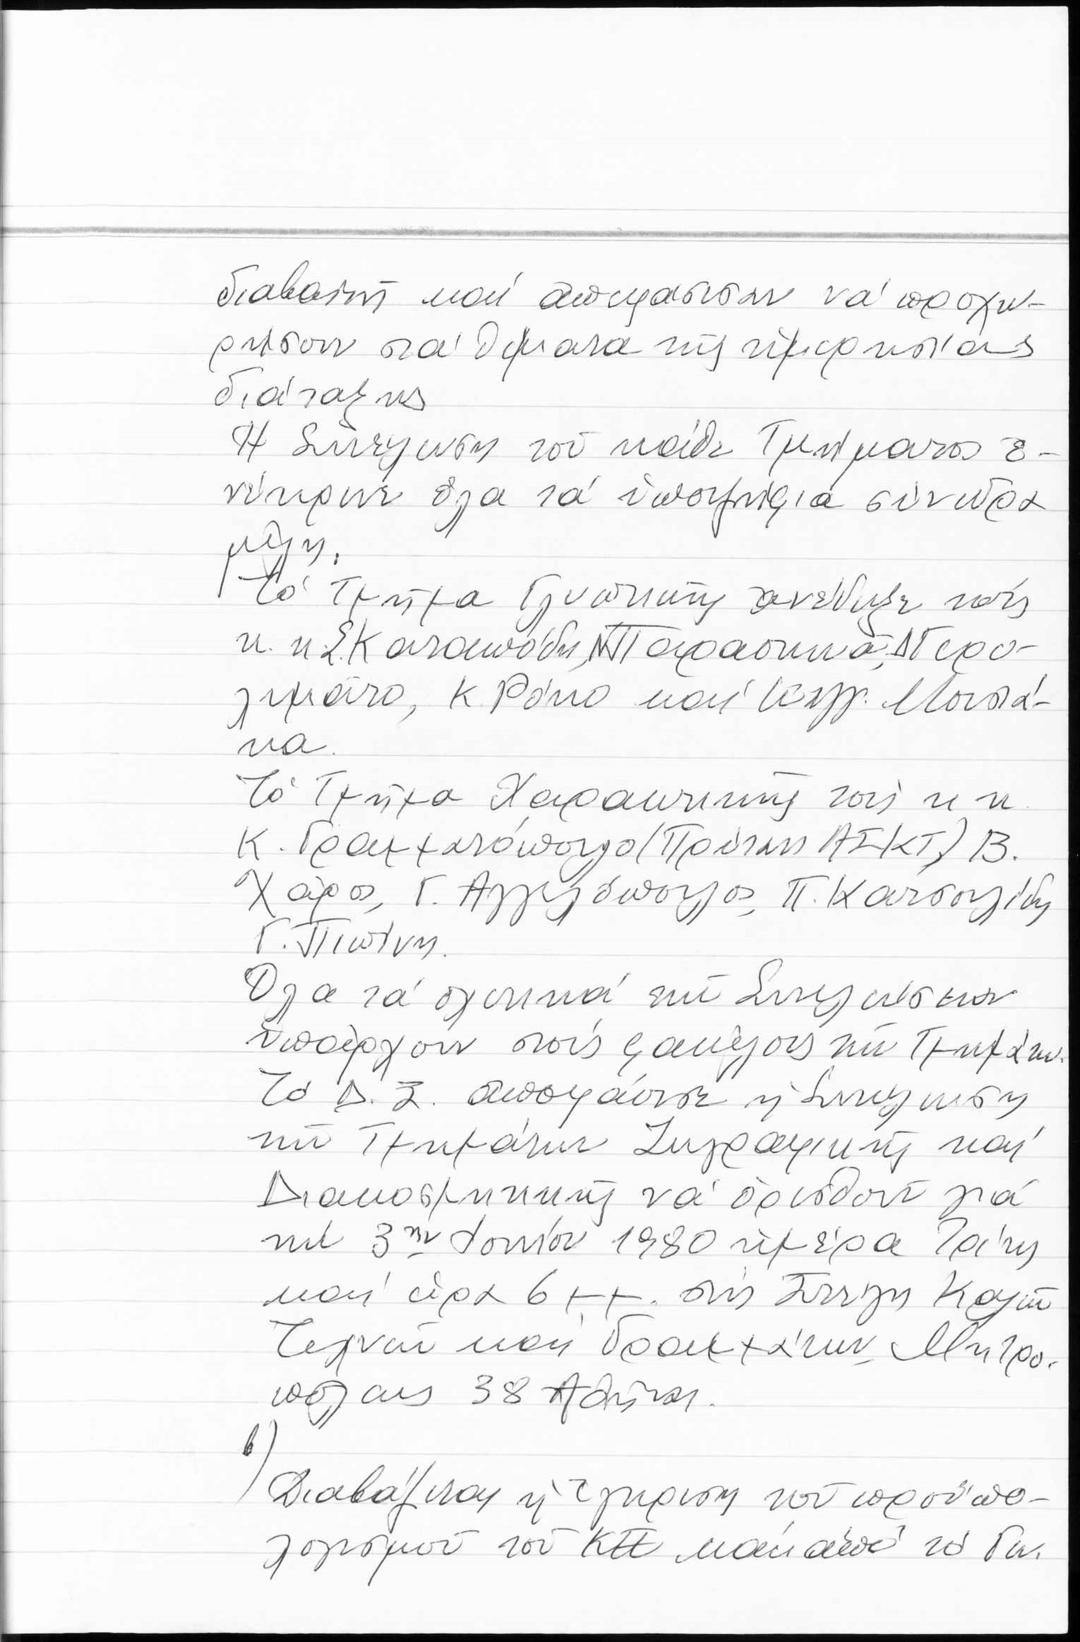 διαβαίνη καί ἀποφάσισαν νά προχω-
ρήσουν στά θέματα τῆς ἡμερησίας
διάταξης
Ἡ Συνέλευση τοῦ κάθε Τμήματος ἐ-
νέκρινε ὅλα τά ὑποψήφια σύνεδρα
μέλη.
Τό Τμῆμα Γλυπτικῆς ἀνέδειξε τούς
κ.κ Σ. Καταπόδη, Παρασκευᾶ, Δ Γερο-
λυμᾶτο, Κ Ρόκο καί Μουστά-
κα.
Τό Τμῆμα Χαρακτικῆς τούς κ κ
Κ. Γραμματόπουλο (Πρύτανη ΑΣΚΤ) Β.
Χάρος, Γ. Ἀγγελόπουλος, Π. Κατσουλίδη
Γ.
Ὅλα τά σχετικά τῶν Συνελεύσεων
ὑπάρχουν στούς φακέλους τῶν Τμημάτων.
Τό Δ. Σ. ἀποφάσισε ἡ Συνέλευση
τῶν Τμημάτων Ζωγραφικῆς καί
Διακοσμητικῆς νά ὁρισθοῦν γιά
τήν 3ην Ἰουνίου 1980 ἡμέρα Τρίτη
καί ὥρα 6 μμ. στή Στέγη Καλῶν
Τεχνῶν καί Γραμμάτων, Μητρο-
πόλεως 38 Ἀθήνα.
β)
Διαβάζεται ἡ ἔγκριση τοῦ προϋπο-
λογισμοῦ τοῦ ΚΕ καί ἀπό τό Γεν.